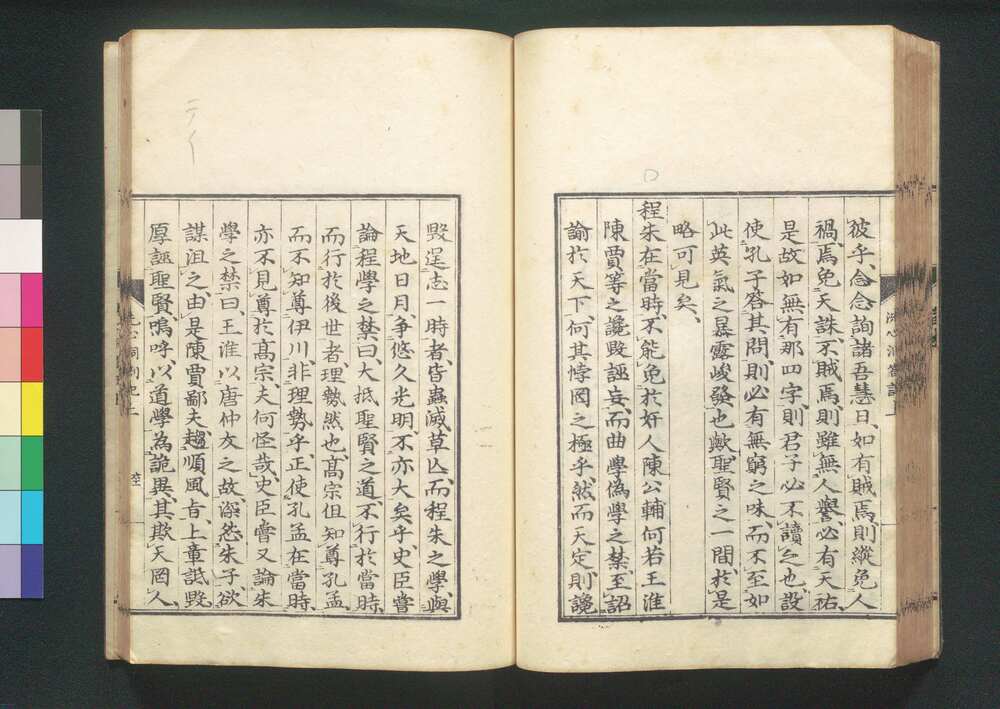 彼乎、念念詢諸吾慧日、如有賊焉、則縱免人
禍、焉免天誅、不賊焉、則雖無人譽、必有天祐、
是故如無有那四字、則君子必不讀之也、設
使孔子答其問、則必有無窮之味、而不至如
此英氣之暴露峻發也歟、聖賢之一間於是
略可見矣、
程朱在當時、不能免於奸人陳公輔何若王淮
陳賈等之讒毀誣妄、而曲學偽學之禁、至詔
諭於天下、何其悖罔之極乎、然而天定則讒
毀逞志一時者、皆蟲滅草亾、而程朱之學、與
天地日月、爭悠久光明、不亦大矣乎、史臣嘗
論程學之禁曰、大抵聖賢之道、不行於當時、
而行於後世者、理勢然也、高宗但知尊孔孟
而不知尊伊川、非理勢乎、正使孔孟在當時、
亦不見尊於高宗、夫何怪哉、史臣嘗又論朱
學之禁曰、王淮以唐仲友之故、深怨朱子、欲
謀沮之、由是陳賈鄙夫、趨順風旨、上章詆毀、
厚誣聖賢、嗚呼、以道學為詭異、其欺天罔人、